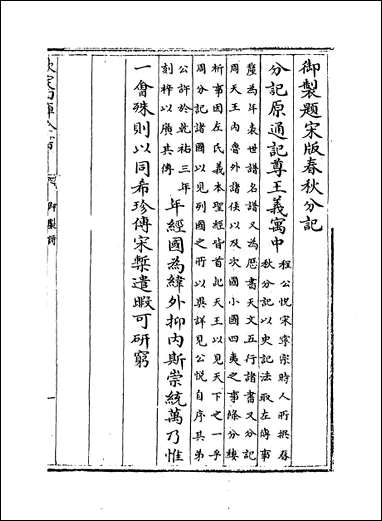 御製題宋版春秋分記
分記原通記尊王義寓中
程公悅宋寧宗時人所撰春
秋分記以史記法取左傳事
釐為年表世譜名譜又為歷書天文五行諸書又分記
周天王內魯外諸侯以及次國小國四夷之事條分縷
析事因左氏義本聖經皆首紀天王以見天下之一乎
周分記諸國以見列國之所以異詳見公悅自序其弟
公許於乾祐三年
刻梓以廣其傳
年經國為緯外抑內斯崇統萬乃惟
一會殊則以同希珍傳宋槧遣暇可研窮
欽定四庫全書
御製詩